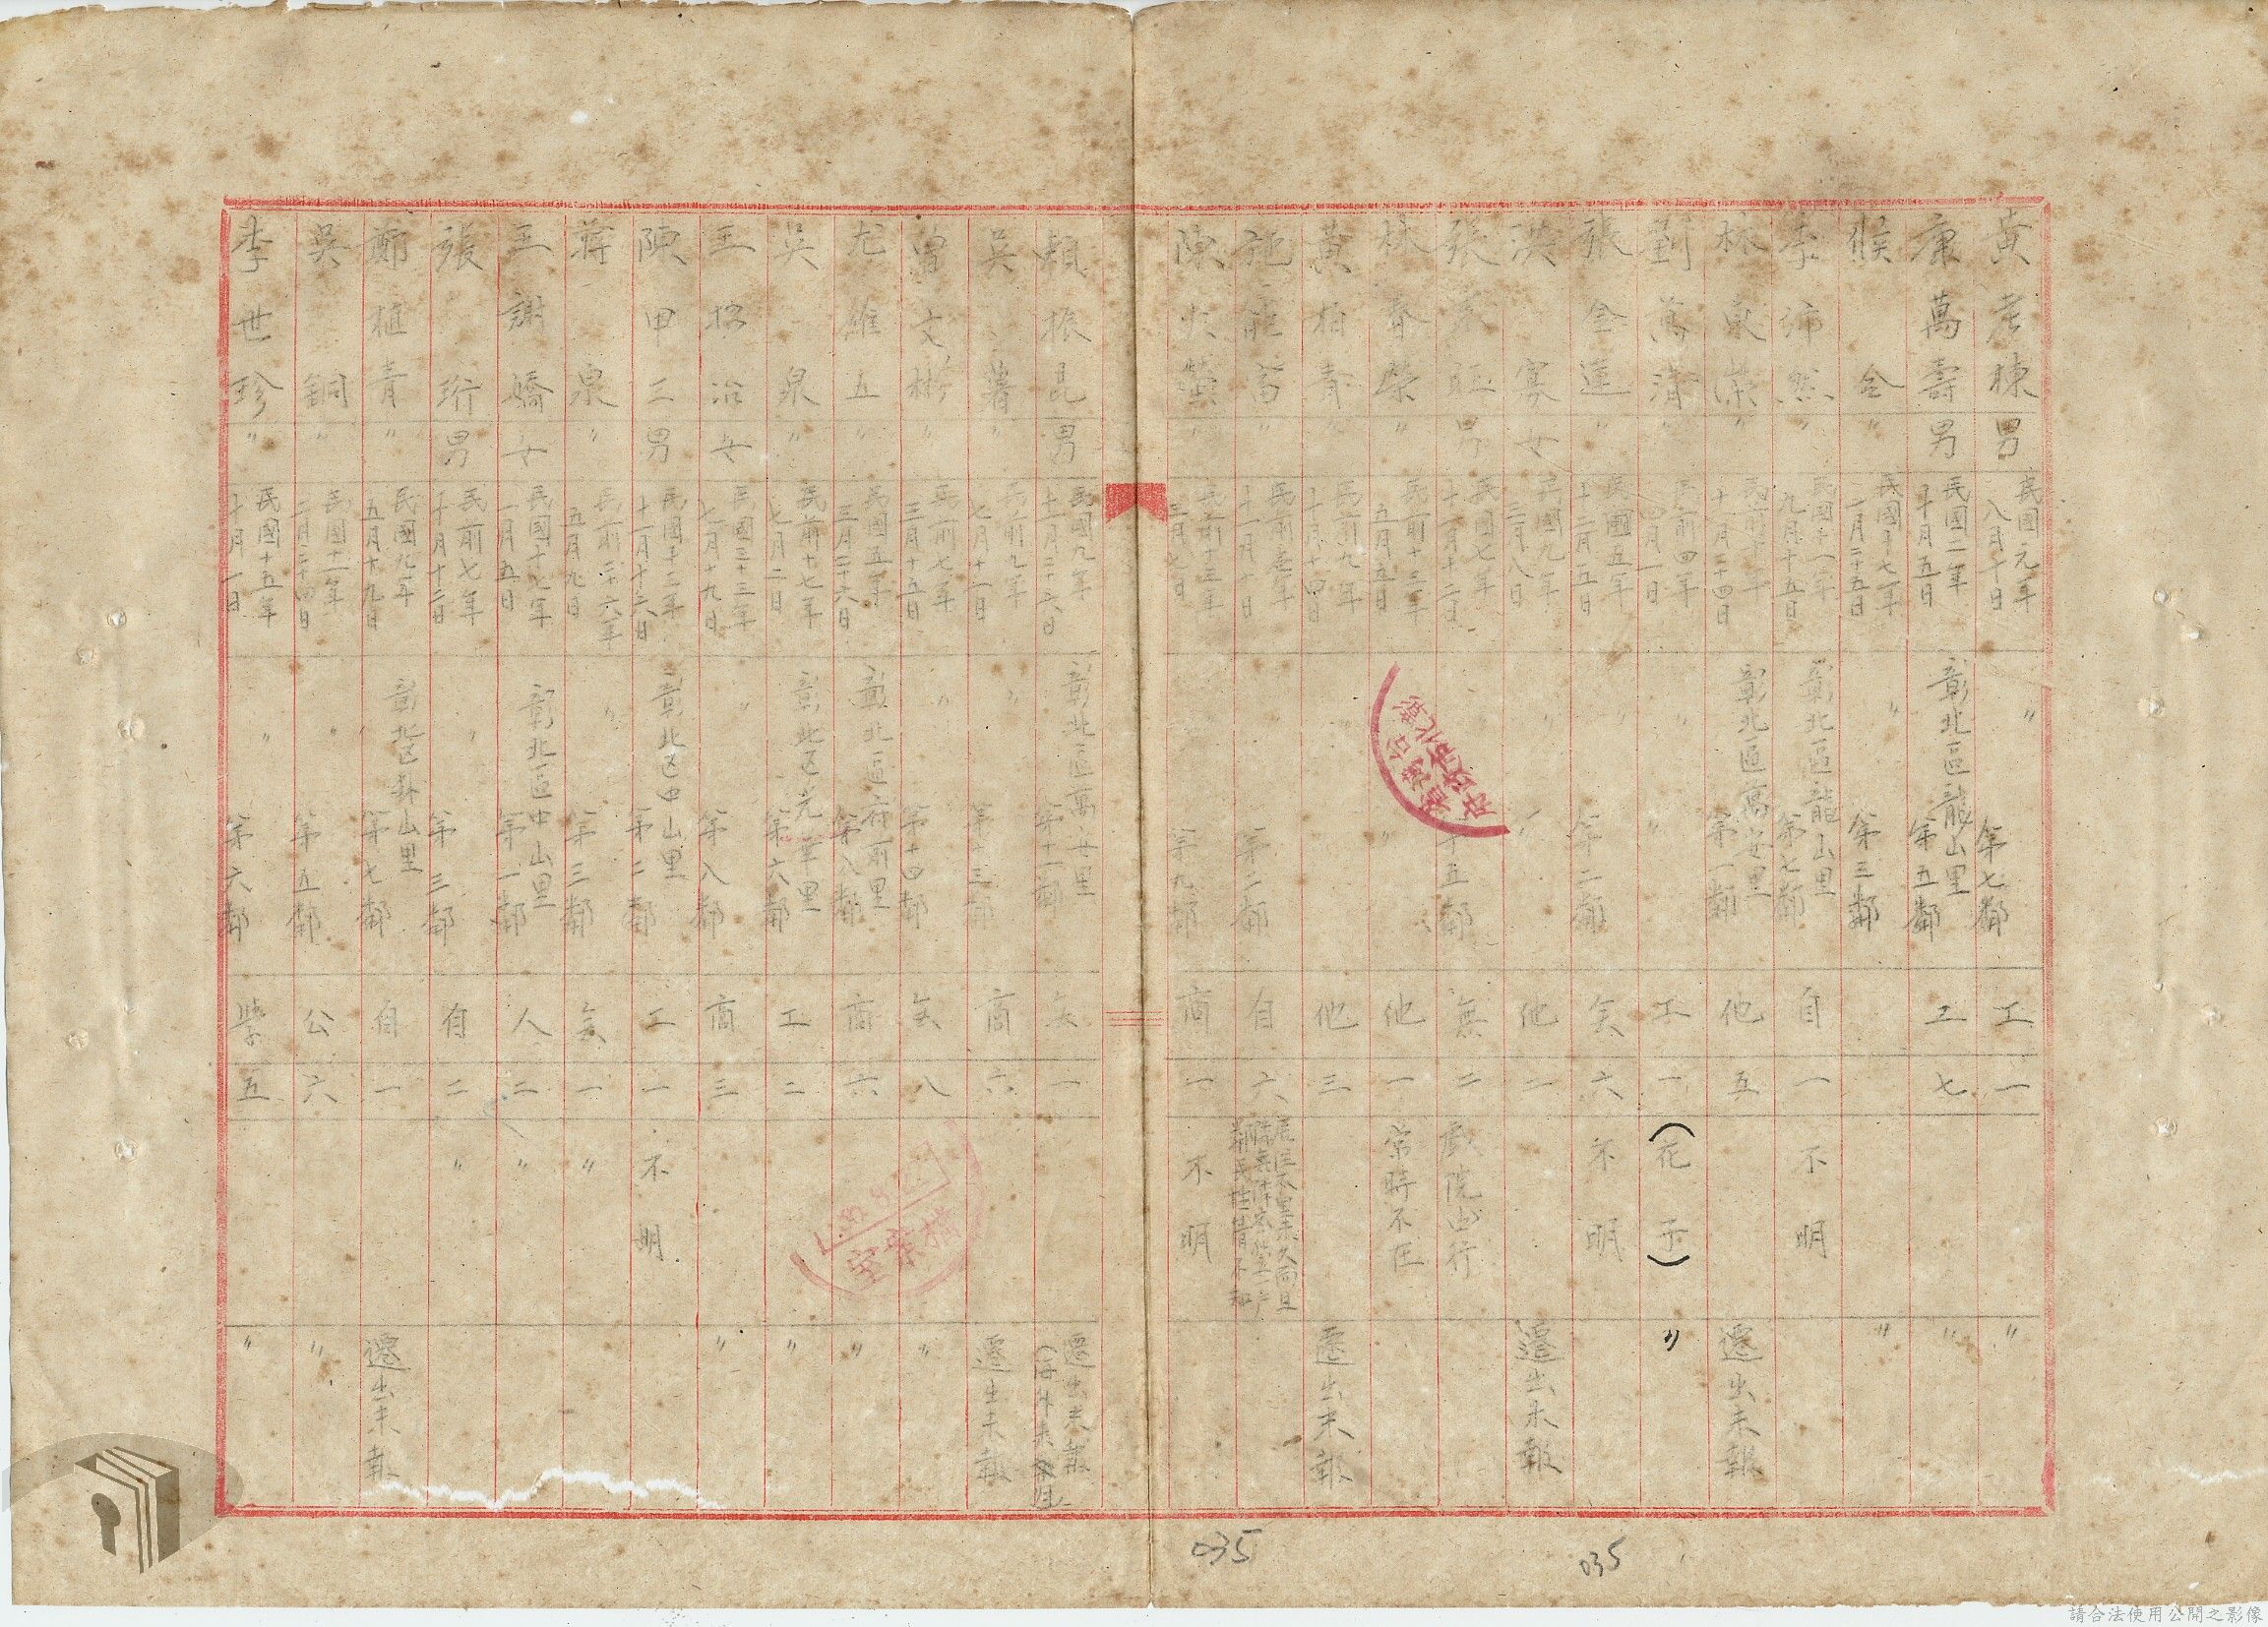 黃彥棟 男 民國元年八月十日 〃 第七鄰 工 一 〃
康萬壽 男 民國二年十月五日 彰北區龍山里 第五鄰 工 七 〃
候 金 〃 民國十七年一月二十五日 〃 第三鄰 〃
李沛然 〃 民國十一年九月十五日 彰北區龍山里 第七鄰 自 一 不明
林東榮 〃 民前十年十一月二十四日 彰北區萬安里 第一鄰 他 五 遷出未報
劉萬清 〃 民前四年四月一日 〃 〃 工 一 (花子) 〃
張金蓮 〃 民國五年十二月五日 〃 第二鄰 無 六 不明
洪 寡 女 民國九年三月八日 〃 〃 他 二 遷出未報
張 旺 男 民國七年十一月十二日 十五鄰 無 二 戲院出行
林春榮 〃 民前十三年五月五日 〃 他 一 常時不在
黃栢青 〃 民前九年十月十四日 他 三 遷出未報
施能富 〃 民前 年十一月一日 第二鄰 自 六
陳火螢 〃 民前十三年三月七日 第九鄰 商 一 不明
賴振昆 男 民國九年十二月二十六日 彰北區萬安里 第十一鄰 無 一 遷出未報
吳 薯 〃 民前九年七月十一日 〃 第十三鄰 商 六 遷出未報
曾文彬 〃 民前七年三月十五日 〃 第十四鄰 無 八 〃
尤維五 〃 民國五年三月二十六日 彰北區府前里 第八鄰 商 六 〃
吳 泉 〃 民前十七年七月二日 彰北区光華里 第六鄰 工 二 〃
王招治 女 民國二十三年七月十九日 〃 第八鄰 商 三 〃
陳甲三 男 民國十二年十一月十六日 彰北区中山里 第二鄰 工 一 不明
蔣 泉 〃 民前二十六年五月九日 〃 第三鄰 無 一 〃
王謝嬌 女 民國十七年一月五日 彰北區中山里 第一鄰 人 二 〃
張 珩 男 民前七年十月十二日 〃 第三鄰 自 二 〃
鄭植青 〃 民國九年五月十九日 彰北区卦山里 第七鄰 自 一 遷出未報
吳 銅 〃 民國十二年二月二十四日 〃 第五鄰 公 六 〃
李世珍 〃 民國十五年十月一日 〃 第六鄰 學 五 〃
台灣省
彰化市政府
檔案室
035
035
請合法使用公開之影像